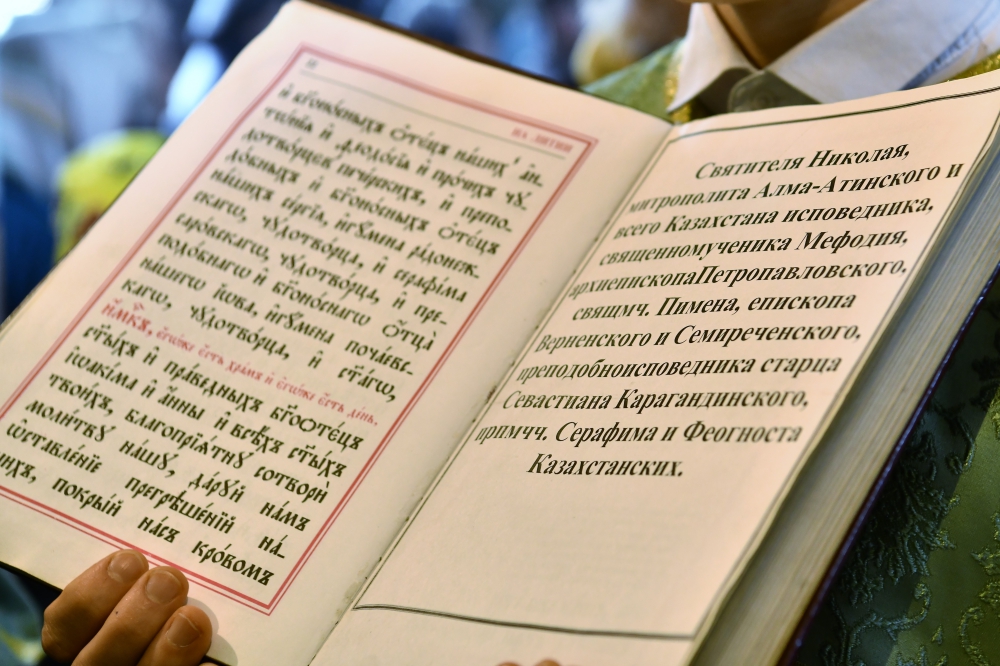 НА ЛИТИИ
и҆ бг҃оно́сныхъ ѻ҆тє́цъ на́шихъ, а҆н-
тѡ́нїа и҆ ѳеодо́сїа и҆ про́чихъ чꙋ-
дотво́рцєвъ пече́рскихъ, и҆ препо-
до́бныхъ и҆ бг҃оно́сныхъ ѻ҆тє́цъ
на́шихъ се́ргїа, и҆гꙋ́мена ра́донеж-
скагѡ, чꙋдотво́рца, и҆ серафі́ма
саро́вскагѡ, чꙋдотво́рца, и҆ пре-
подо́бнагѡ и҆ бг҃оно́снагѡ ѻ҆тца̀
на́шегѡ і҆́ѡва, и҆гꙋ́мена поча́евс-
кагѡ, чꙋдотво́рца, и҆ ст҃а́гѡ,
и҆́м҃къ, є҆гѡ́же є҆́сть хра́мъ и҆ є҆гѡ́же є҆́сть де́нь.
ст҃ы́хъ и҆ пра́ведныхъ бг҃оѻте́цъ
і҆ѡакі́ма и҆ а҆́нны и҆ всѣ́хъ ст҃ы́хъ
твои́хъ, благопрїѧ́тнꙋ сотворѝ
моли́твꙋ на́шꙋ, да́рꙋй на́мъ
ѡ҆ставле́нїе прегрѣше́нїй на́-
шихъ, покры́й на́съ кро́вомъ
Святителя Николая,
митрополита Алма-Атинского и
всего Казахстана исповедника,
священномученика Мефодия,
архиепископаПетропавловского,
свящмч. Пимена, епископа
Верненского и Семиреченского,
преподобноисповедника старца
Севастиана Карагандинского,
прпмчч. Серафима и Феогноста
Казахстанских.